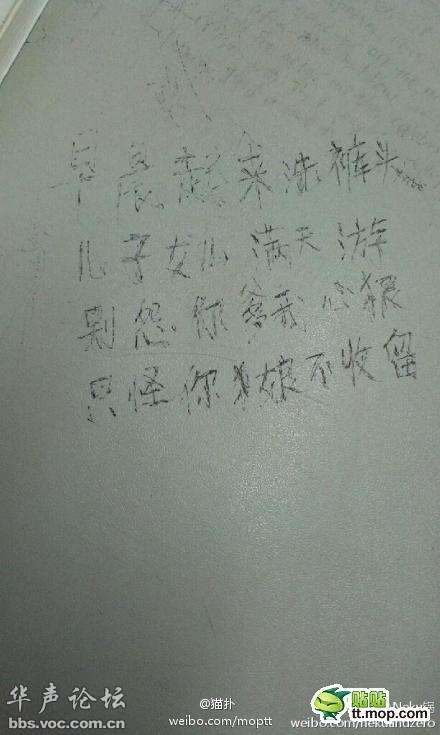 早晨起来洗裤头
儿子女儿满天游
别怨你爹我心狠
只怪你娘不收留
华声论坛
bbs.voc.com.cn
@猫扑
weibo.com/moptt
贴贴
tt.mop.com